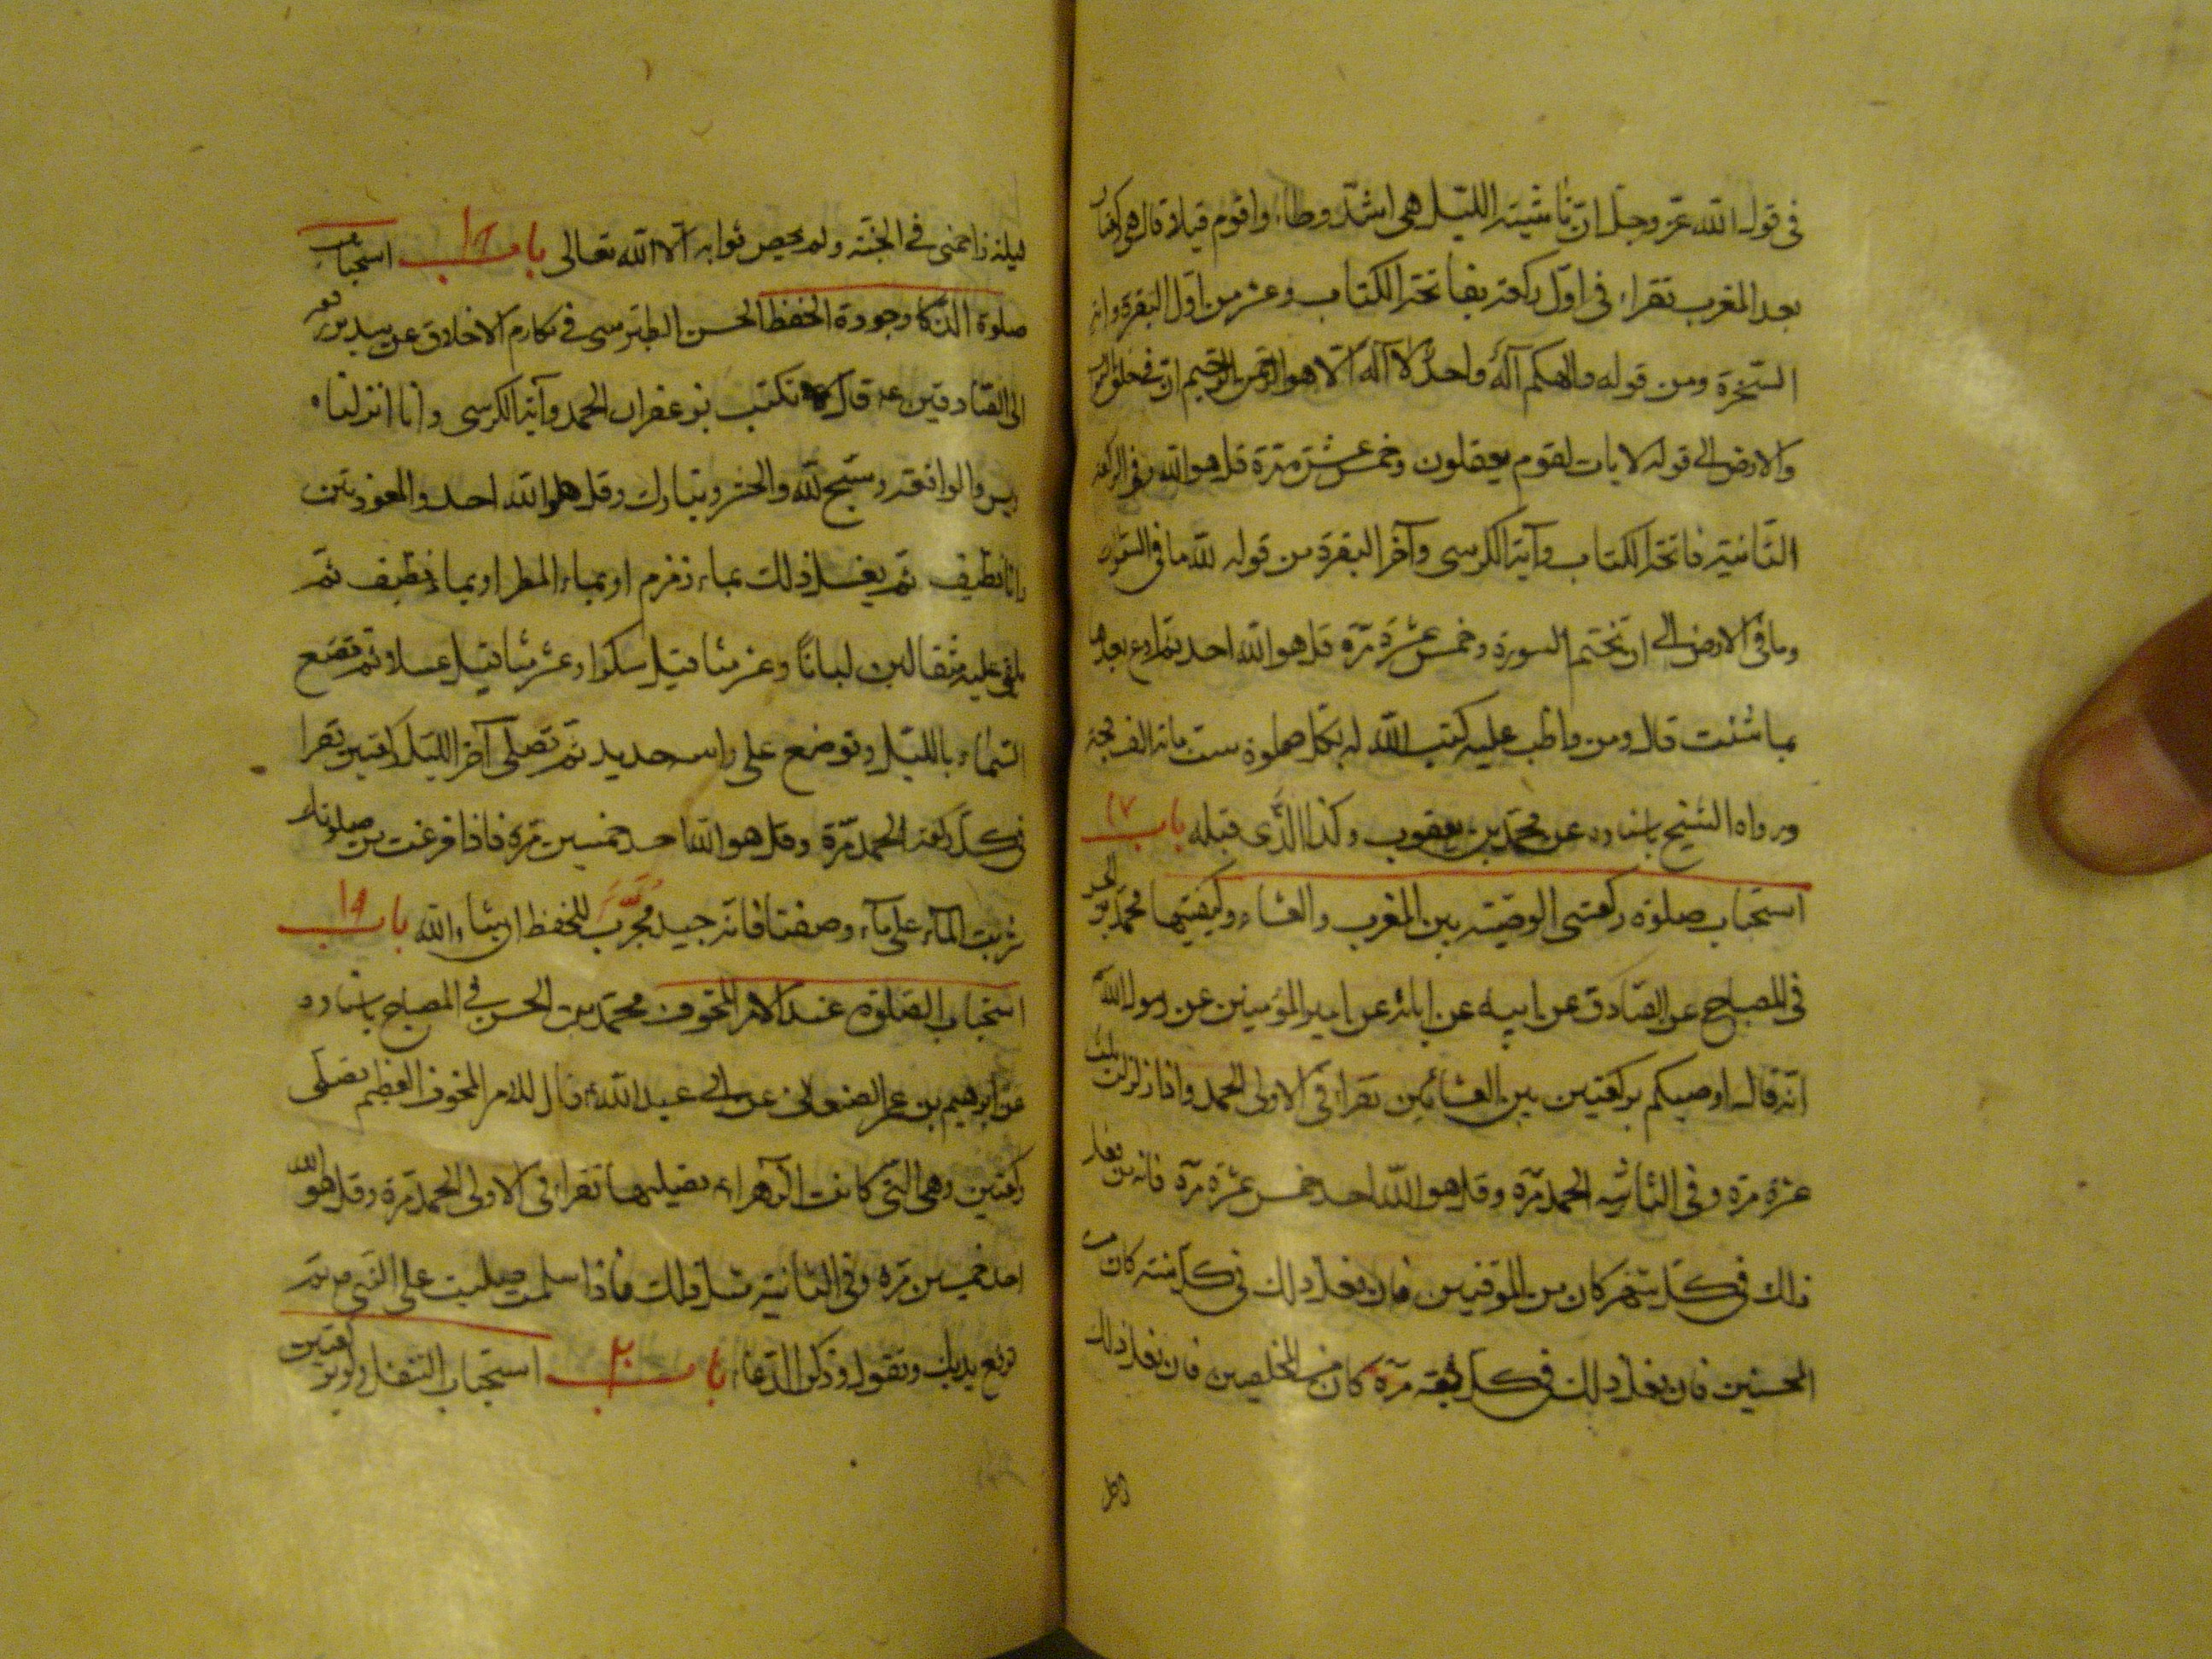 فى قوله الله عز وجل ان ناشيته الليل هى اشد وطاء واقوم قيلا قال هى ركعتان
بعد المغرب تقراء فى اول ركعة بفاتحة الكتاب وعشر من اول البقرة واية
السخرة ومن قوله والهكم آله واحد لا آله الا هو الرحمن الرحيم ان فى خلق السموات
والارض الى قوله لايات لقوم يعقلون وخمس عشرة مرة قل هو الله وفى الركعة
الثانية فاتحة الكتاب وآية الكرسى وآخر البقرة من قوله لله ما فى السموات
وما فى الارض الى ان تختم السورة وخمس عشرة مرة قل هو الله احد ثم ادع بعدها
بما شئت قال ومن واظب عليه كتب الله له بكل صلوة ست مائة الف حجة
ورواه الشيخ باسناده عن محمد بن يعقوب وكذا الذى قبله باب ١٧
استحباب صلوة ركعتى الوصية بين المغرب والعشاء وكيفيتها محمد بن الحسن
فى المصباح عن الصادق عن ابيه عن ابائه عن امير المؤمنين عن رسول الله
انه قال اوصيكم بركعتين بين العشائين تقراء فى الاولى الحمد واذا زلزلت ثلث
عشرة مرة وفى الثانية الحمد مرة وقل هو الله احد خمس عشرة مرة فانه من فعل
ذلك فى كل شهر كان من الموقنين فان فعل ذلك فى كل سنة كان من
المحسنين فان فعل ذلك فى كل جمعة مرة كان من المخلصين فان فعل ذلك
كل
ليلة زاحمنى فى الجنة ولم يحص ثوابه الا الله تعالى باب ١٨ استحباب
صلوة الذكا وجودة الحفظ الحسن الطبرسى فى مكارم الاخلاق عن سدير رفعه
الى الصادقين ع قال تكتب بزعفران الحمد وآية الكرسى وانا انزلناه
ويس والواقعة وسبح لله والحشر وتبارك وقل هو الله احد والمعوذتين
فى انا نظيف ثم يغسل ذلك بماء زمزم او بماء المطر او بماء نظيف ثم
يلقى عليه مثقالين لبانا وعشر مثاقيل سكرا وعشر مثاقيل عسلا ثم تضع
السماء بالليل وتوضع على راسه حديد ثم تصلى آخر الليل ركعتين تقرا
فى كل ركعة الحمد مرة وقل هو الله احد خمسين مرة فاذا فرغت من صلوتك
شربت الماء على ما وصفنا فانه جيد مجرب للحفظ ان شاء الله باب ١٩
استحباب الصلوة عند الامر المخوف محمد بن الحسن فى المصباح باسناده
عن ابرهيم بن عمر الصنعانى عن ابى عبد الله ع قال للامر المخوف العظيم تصلى
ركعتين وهى التى كانت الزهراء ع تصليها تقراء فى الاولى الحمد مرة وقل هو الله
احد خمسين مرة وفى الثانية مثل ذلك فاذا سلمت صليت على النبى ص ثم
ترفع يديك وتقول وذكر الدعاء باب ٢٠ استحباب التنفل ولو بركعتين